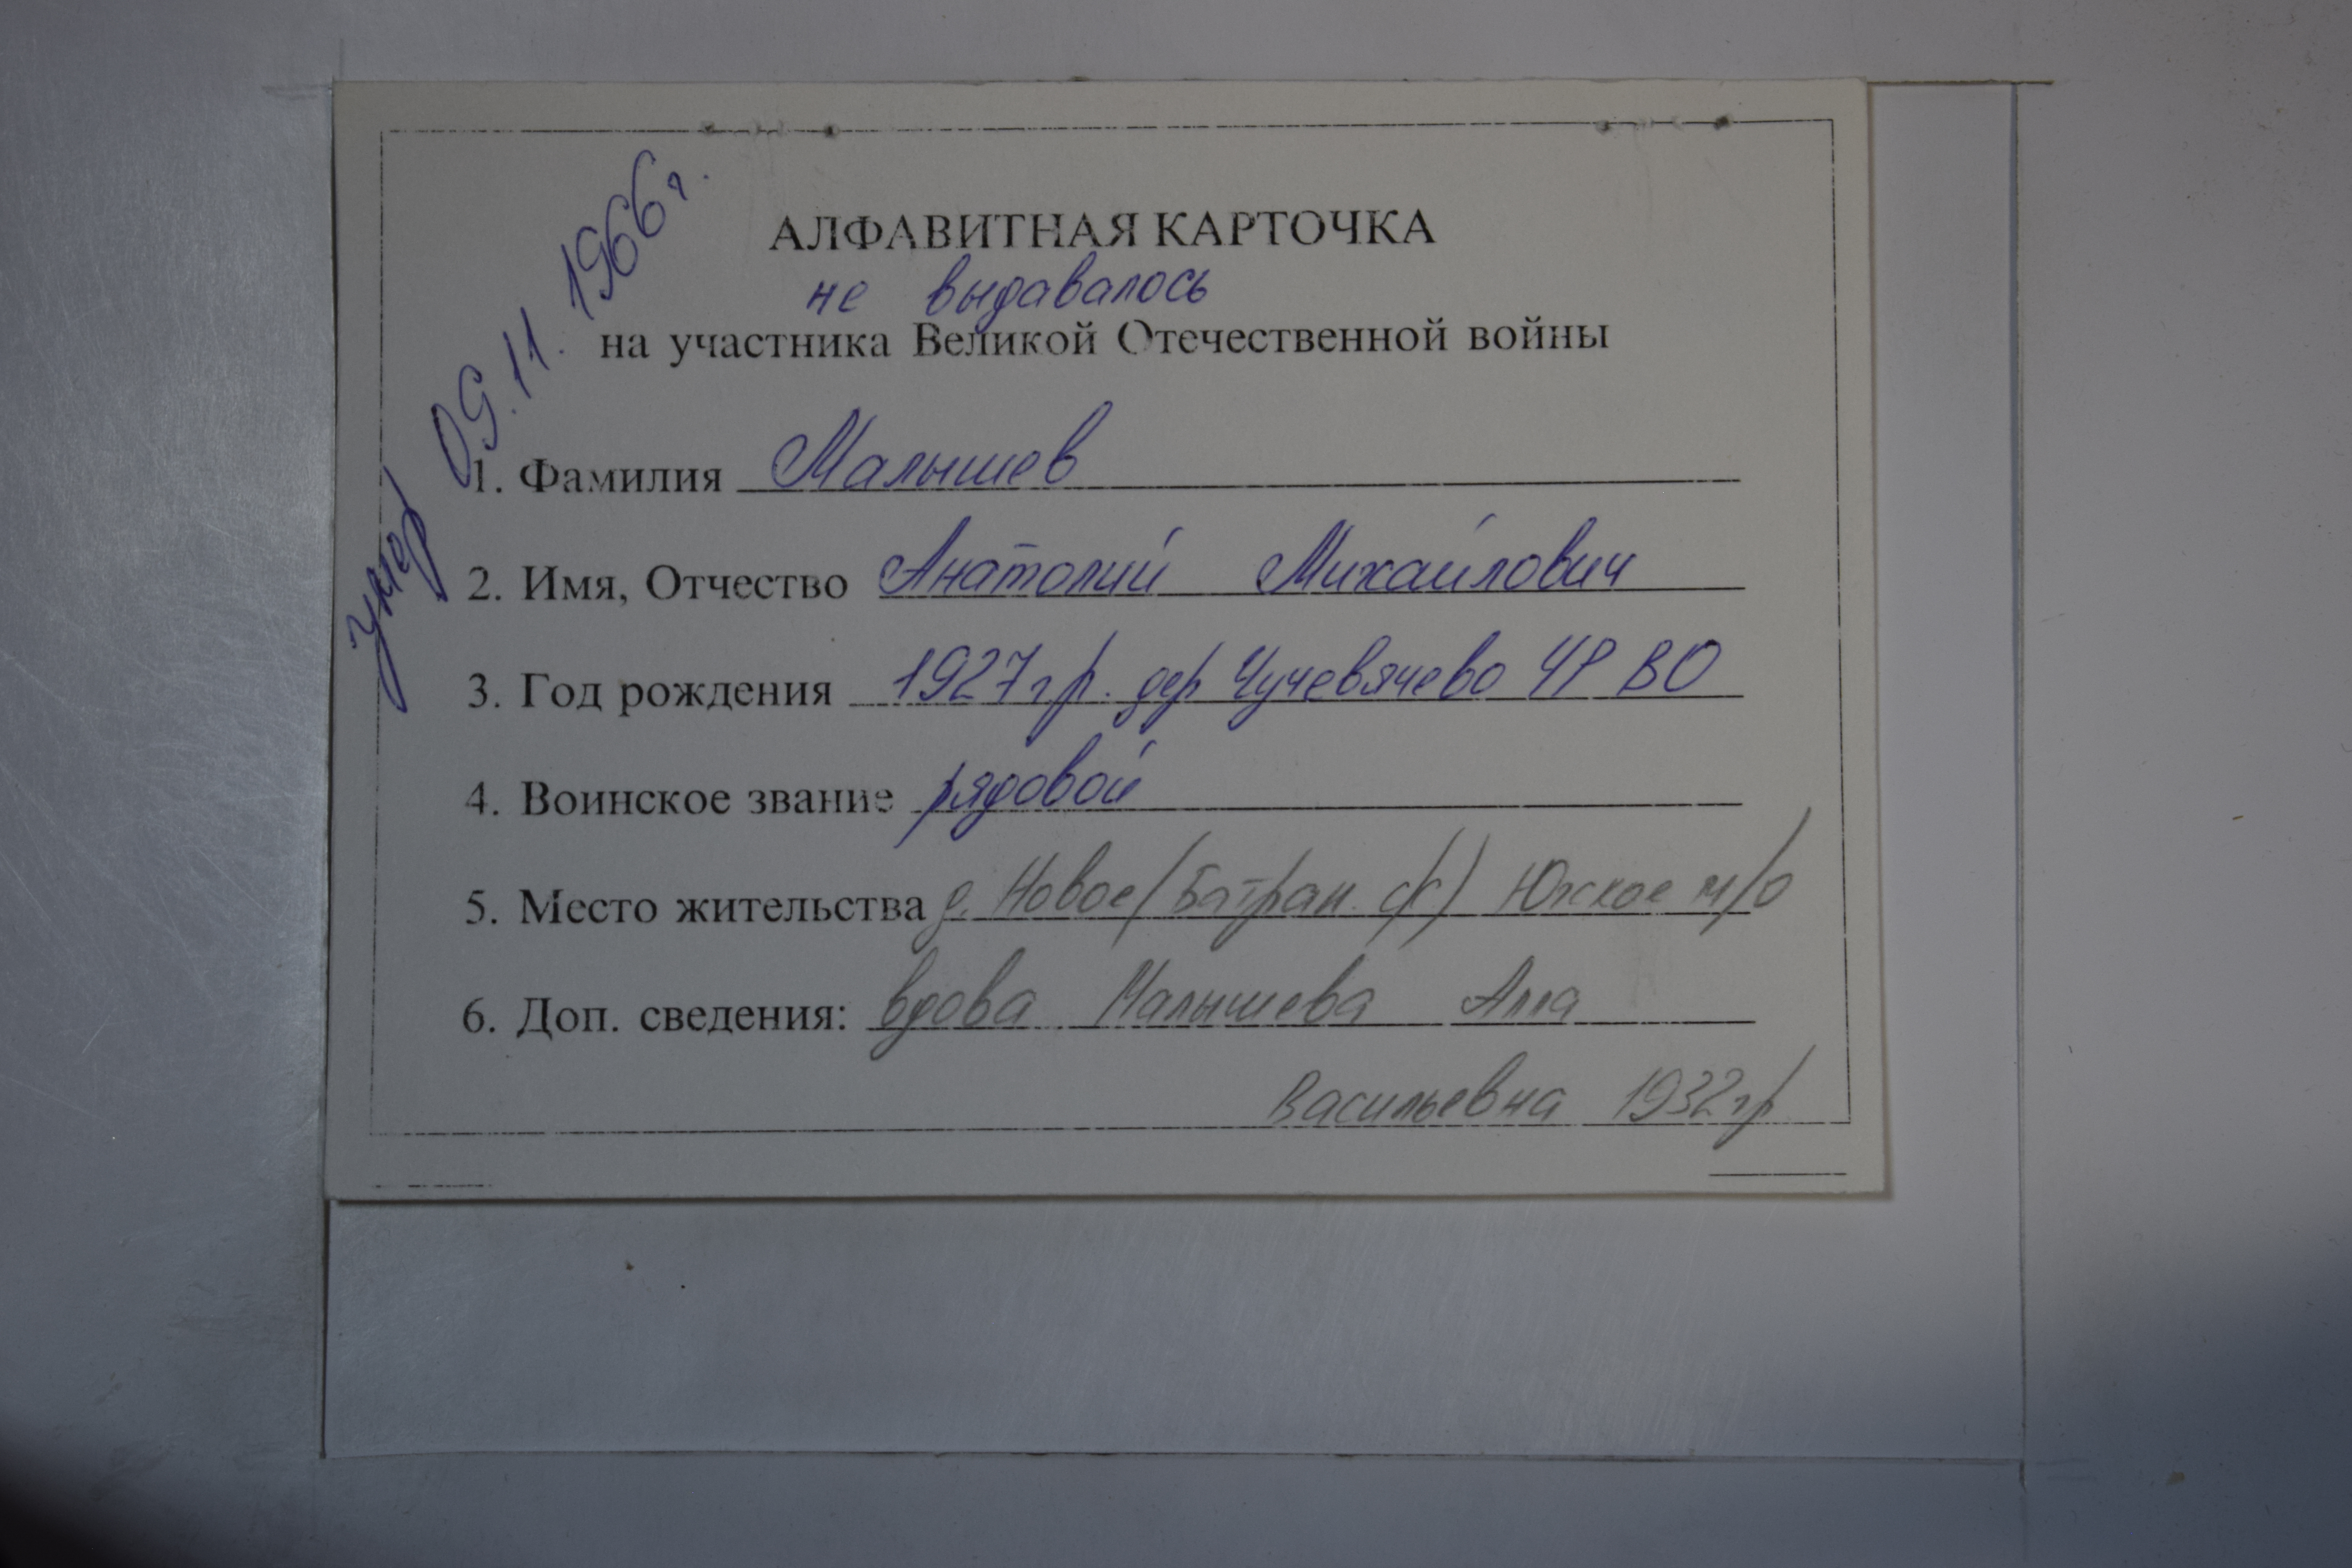 умер 09.11.1966г.
АЛФАВИТНАЯ КАРТОЧКА
не выдавалось
на участника Великой Отечественной войны
1. Фамилия Малышев
2. Имя, Отчество Анатолий Михайлович
3. Год рождения 1927гр. дер Чучевячево ЧР ВО
4. Воинское звание рядовой
5. Место жительства д. Новое (Батран. с/с) Югское м/о
6. Доп. сведения: вдова Малышева Алла
Васильевна 1932гр